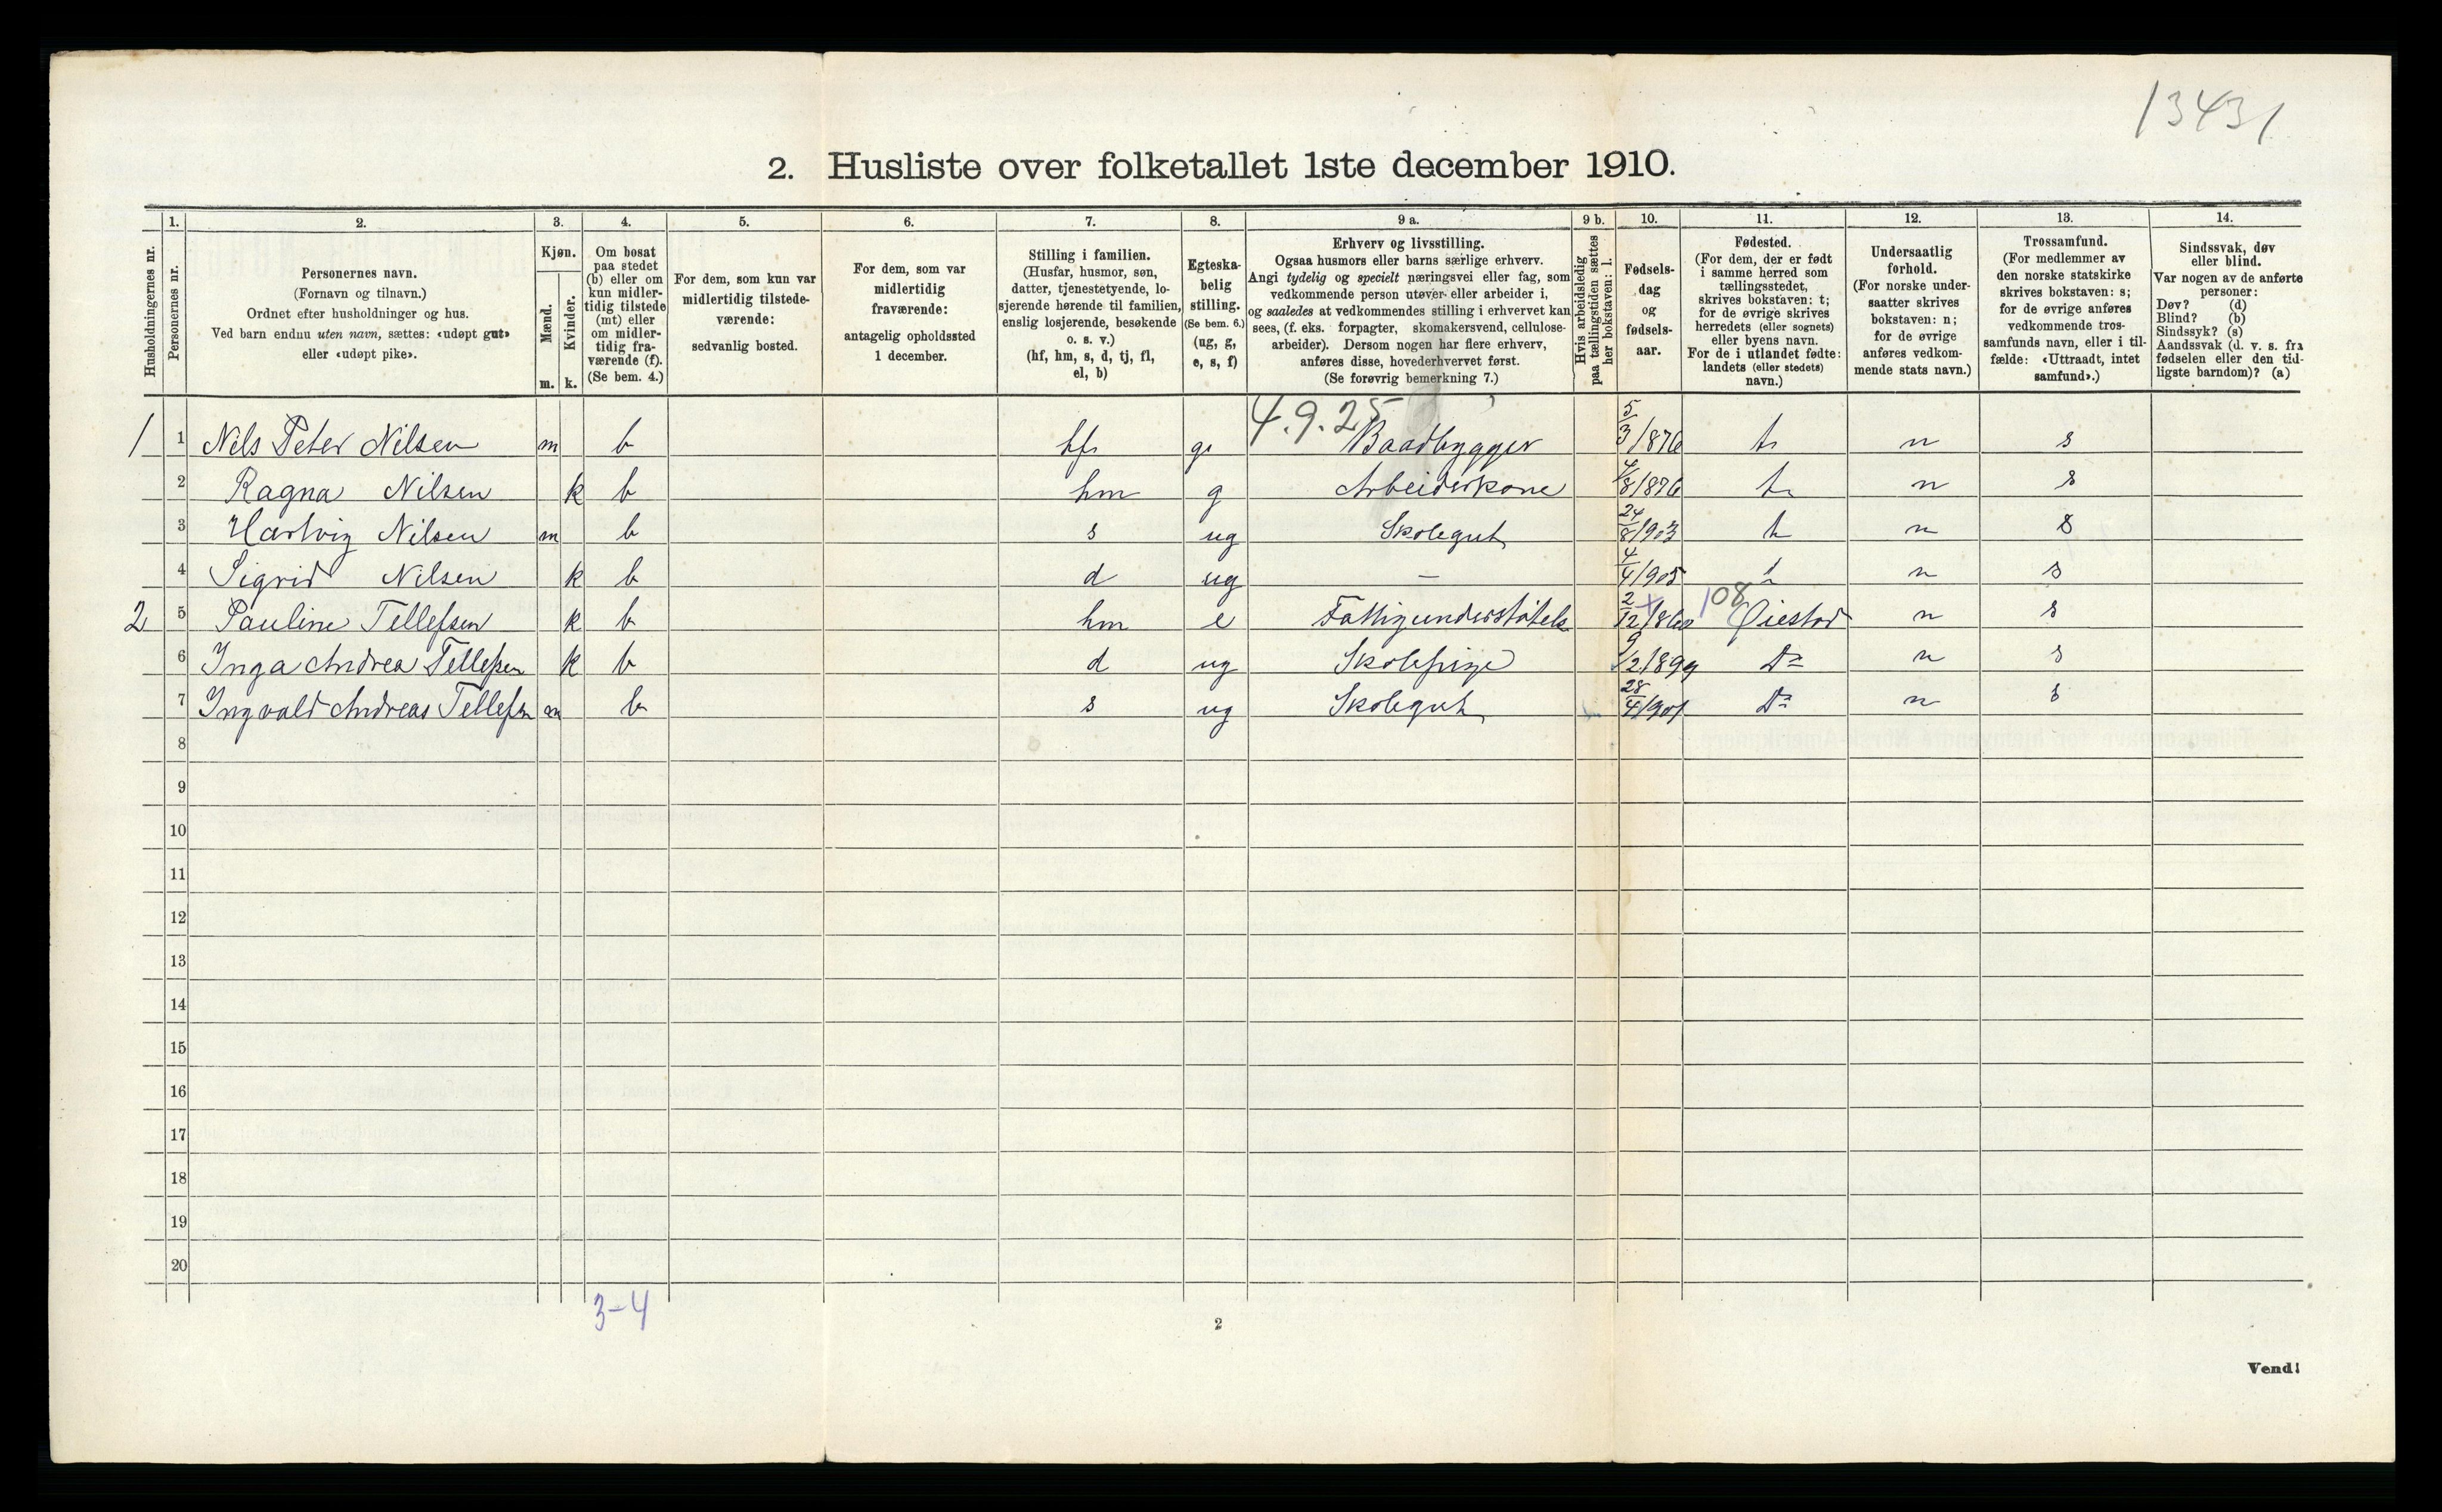 13431
2. Husliste over folketallet 1ste december 1910.
Husholdningernes nr.
1. Personernes nr.
2. Personernes navn.
(Fornavn og tilnavn.)
Ordnet efter husholdninger og hus.
Ved barn endnu uten navn, sættes: «udøpt gut»
eller «udøpt pike».
3. Kjøn.
Mænd. m.
Kvinder. k.
4. Om bosat
paa stedet
(b) eller om
kun midler-
tidig tilstede
(mt) eller
om midler-
tidig fra-
værende (f).
(Se bem. 4.)
5. For dem, som kun var
midlertidig tilstede-
værende:
sedvanlig bosted.
6. For dem, som var
midlertidig
fraværende:
antagelig opholdssted
1 december.
7. Stilling i familien.
(Husfar, husmor, søn,
datter, tjenestetyende, lo-
sjerende hørende til familien,
enslig losjerende, besøkende
o. s. v.)
(hf, hm, s, d, tj, fl,
el, b)
8. Egteska-
belig
stilling.
(Se bem. 6.)
(ug, g,
e, s, f)
9 a. Erhverv og livsstilling.
Ogsaa husmors eller barns særlige erhverv.
Angi tydelig og specielt næringsvei eller fag, som
vedkommende person utøver eller arbeider i,
og saaledes at vedkommendes stilling i erhvervet kan
sees, (f. eks. forpagter, skomakersvend, cellulose-
arbeider). Dersom nogen har flere erhverv,
anføres disse, hovederhvervet først.
(Se forøvrig bemerkning 7.)
9 b. Hvis arbeidsledig
paa tællingstiden sættes
her bokstaven: l.
10. Fødsels-
dag
og
fødsels-
aar.
11. Fødested.
(For dem, der er født
i samme herred som
tællingsstedet,
skrives bokstaven: t;
for de øvrige skrives
herredets (eller sognets)
eller byens navn.
For de i utlandet fødte:
landets (eller stedets)
navn.)
12. Undersaatlig
forhold.
(For norske under-
saatter skrives
bokstaven: n;
for de øvrige
anføres vedkom-
mende stats navn.)
13. Trossamfund.
(For medlemmer av
den norske statskirke
skrives bokstaven: s;
for de øvrige anføres
vedkommende tros-
samfunds navn, eller i til-
fælde: «Uttraadt, intet
samfund».)
14. Sindssvak, døv
eller blind.
Var nogen av de anførte
personer:
Døv? (d)
Blind? (b)
Sindssyk? (s)
Aandssvak (d. v. s. fra
fødselen eller den tid-
ligste barndom)? (a)
4.9.25
1 1 Nels Peter Nilsen m b hf g Baadbygger 5/3/876 t n s
2 Ragna Nilsen k b hm g Arbeiderkone 4/8/876 t n s
3 Hartvig Nilsen m b s ug Skolegut 24/8/903 t n s
4 Sigrid Nilsen k b d ug — 4/4/905 t n s
108
2 5 Pauline Tellefsen k b hm e Fattigunderstøtels 2/12/860 Øiestad n s
6 Inga Andrea Tellefsen k b d ug Skolepige 9/2/899 Do n s
7 Ingvald Andreas Tellefsen m b s ug Skolegut 28/4/901 Do n s
8
9
10
11
12
13
14
15
16
17
18
19
20
3-4
2
Vend!